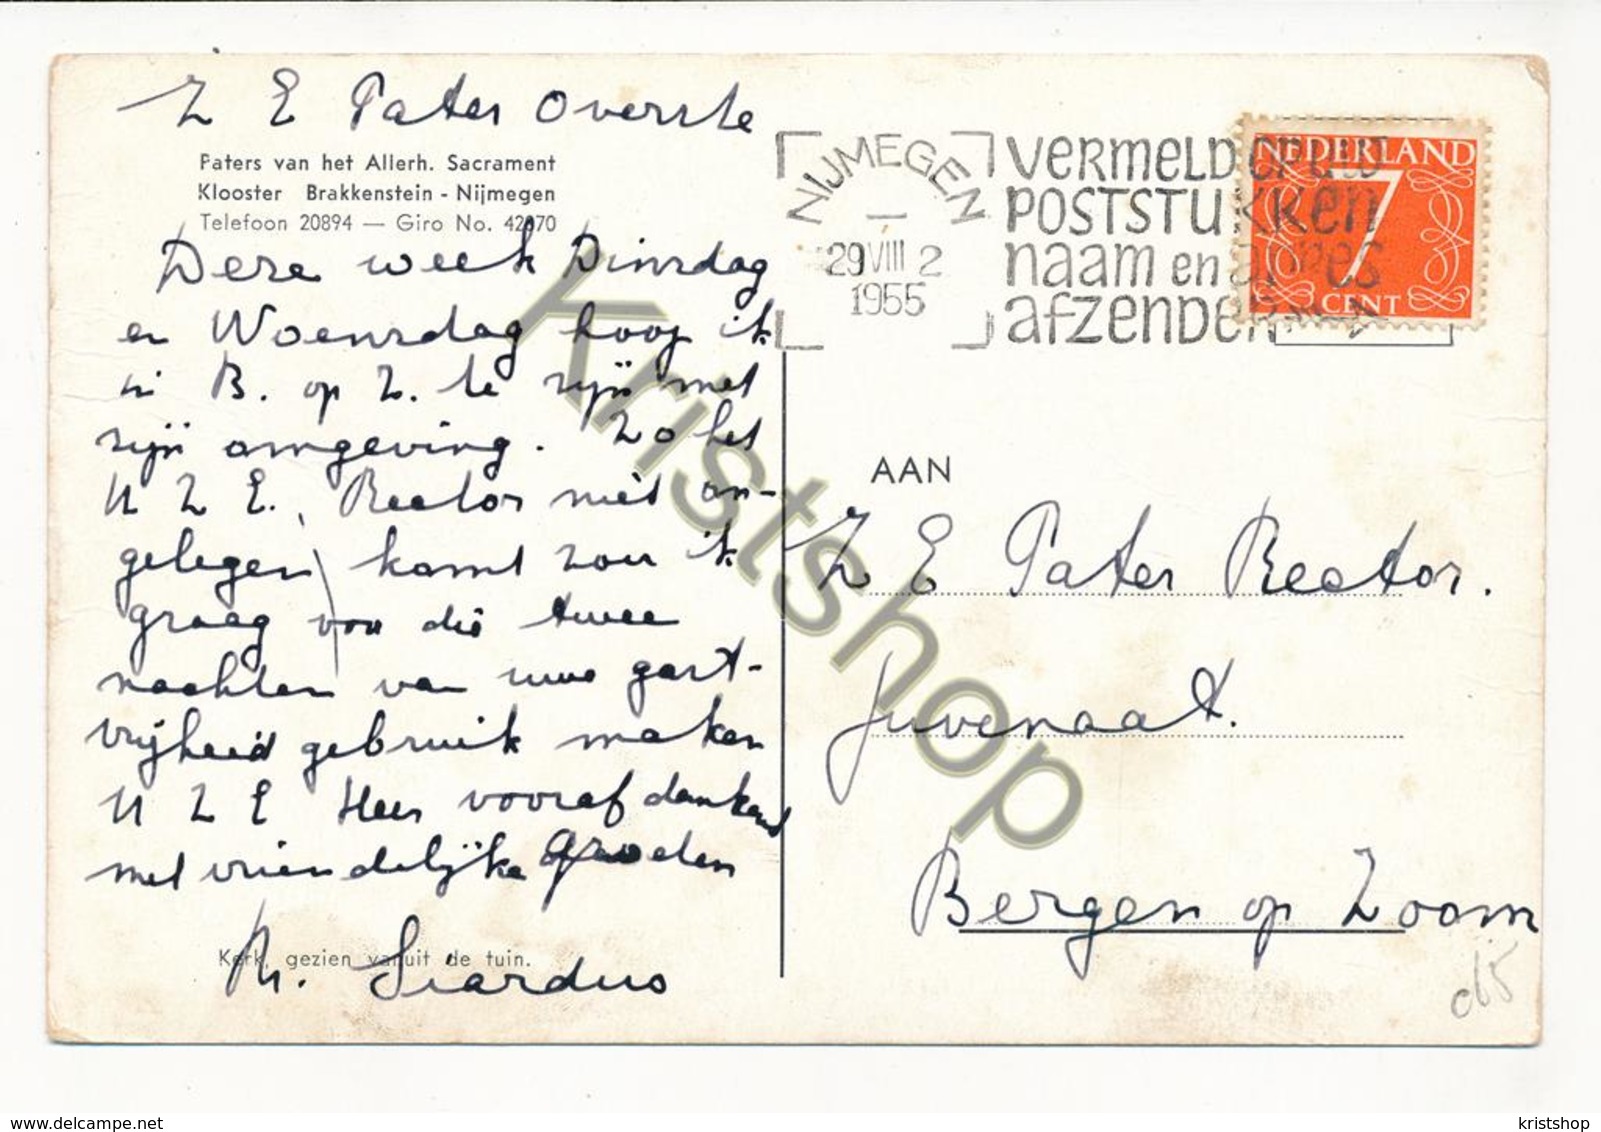 Z E Pater Overste
Paters van het Allerh. Sacrament
Klooster Brakkenstein - Nijmegen
Telefoon 20894 — Giro No. 42070
Deze week Dinsdag
en Woensdag hoop ik
in B. op Z. te zijn met
zijn omgeving. Zo het
U Z E. Rector niet on-
gelegen komt zou ik
graag voor die twee
nachten van uwe gast-
vrijheid gebruik maken
U Z E Heer vooraf dankend
met vriendelijke groeten
Siardus
Kerk, gezien vanuit de tuin.
NIJMEGEN
29 VIII 2
1955
VERMELD OP UW
POSTSTUKKEN
naam en adres
AFZENDER
NEDERLAND
7
CENT
AAN
Z E Pater Rector.
Juvenaat.
Bergen op Zoom
Kristshop
www.delcampe.net
kristshop